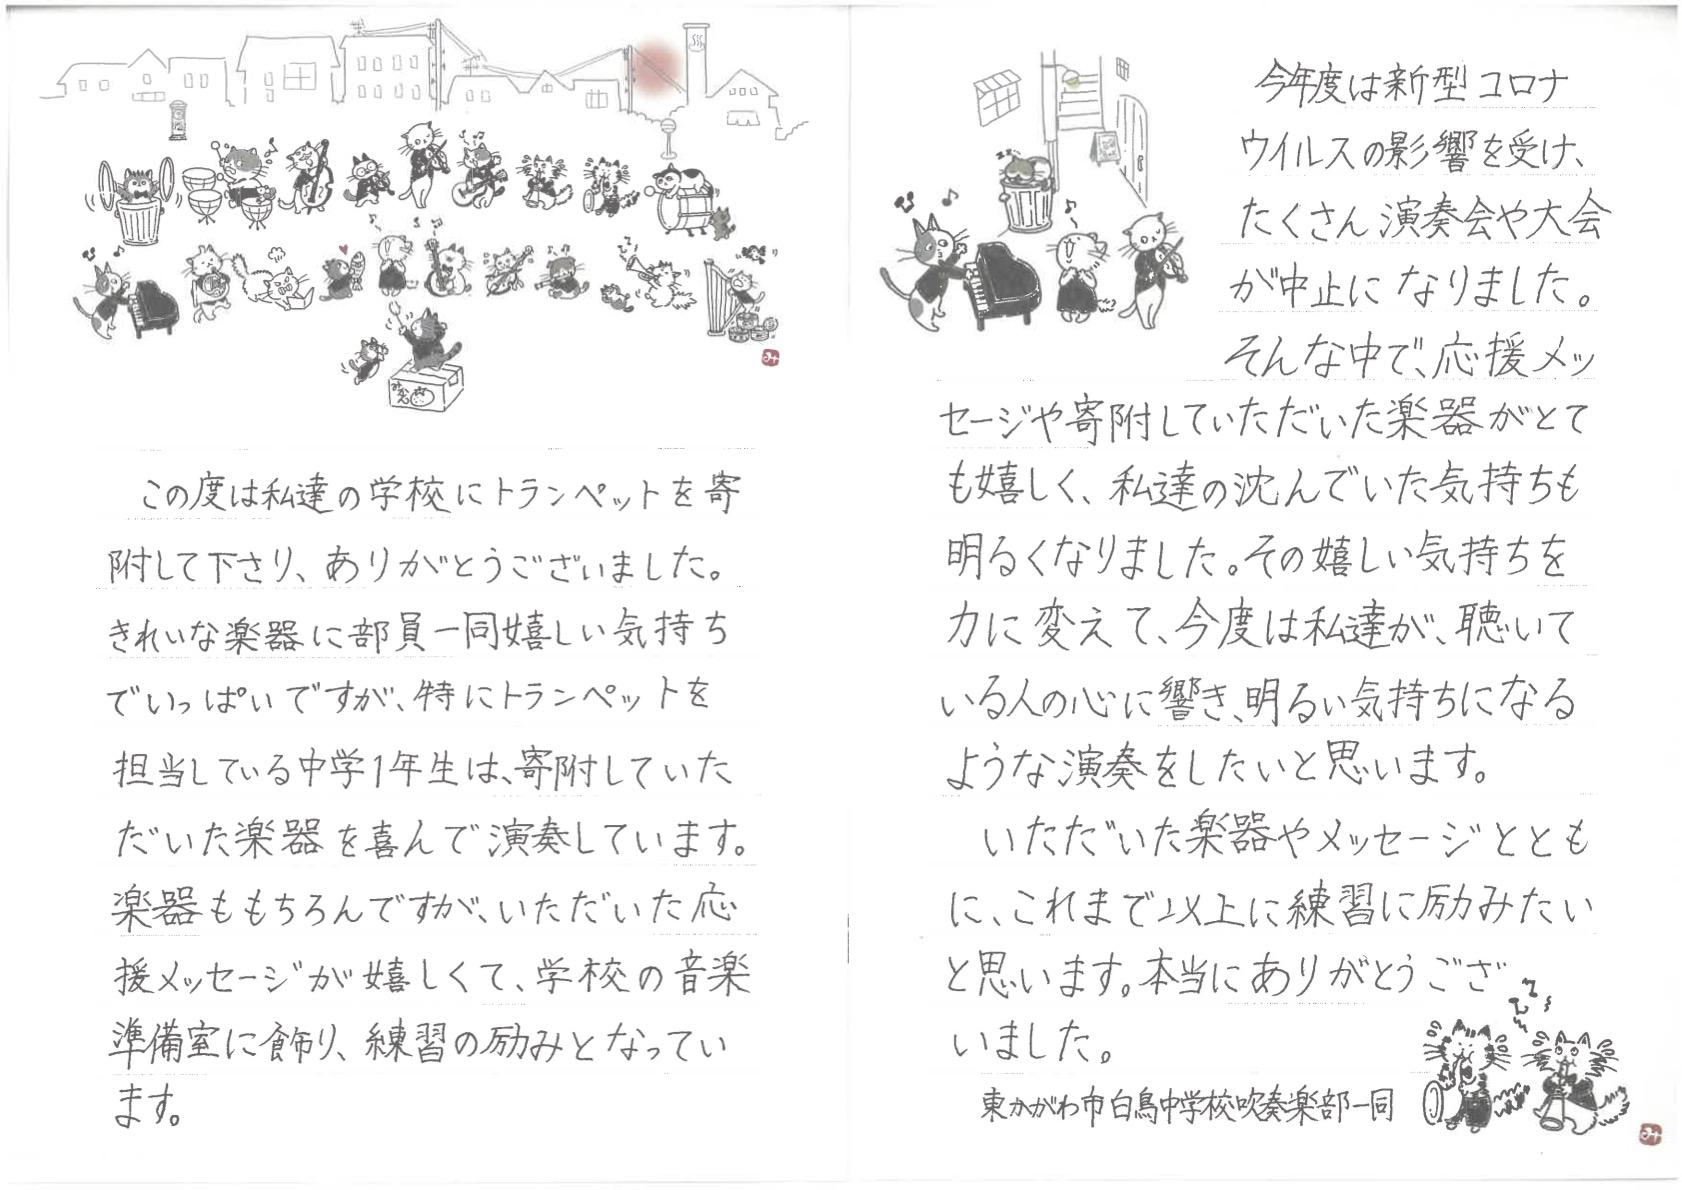 この度は私達の学校にトランペットを寄
附して下さり、ありがとうございました。
きれいな楽器に部員一同嬉しい気持ち
でいっぱいですが、特にトランペットを
担当している中学1年生は、寄附していた
だいた楽器を喜んで演奏しています。
楽器ももちろんですが、いただいた応
援メッセージが嬉しくて、学校の音楽
準備室に飾り、練習の励みとなってい
ます。
今年度は新型コロナ
ウイルスの影響を受け、
たくさん演奏会や大会
が中止になりました。
そんな中で、応援メッ
セージや寄附していただいた楽器がとて
も嬉しく、私達の沈んでいた気持ちも
明るくなりました。その嬉しい気持ちを
力に変えて、今度は私達が、聴いて
いる人の心に響き、明るい気持ちになる
ような演奏をしたいと思います。
いただいた楽器やメッセージととも
に、これまで以上に練習に励みたい
と思います。本当にありがとうござ
いました。
東かがわ市白鳥中学校吹奏楽部一同